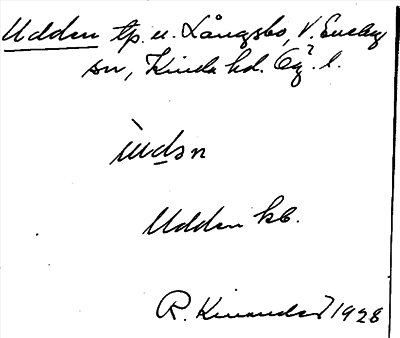 Udden tp. u. Långsbo, V. Eneby
sn, Kinda hd. Ög. l.
ùdsn
Udden kb.
R. Kinander 1928